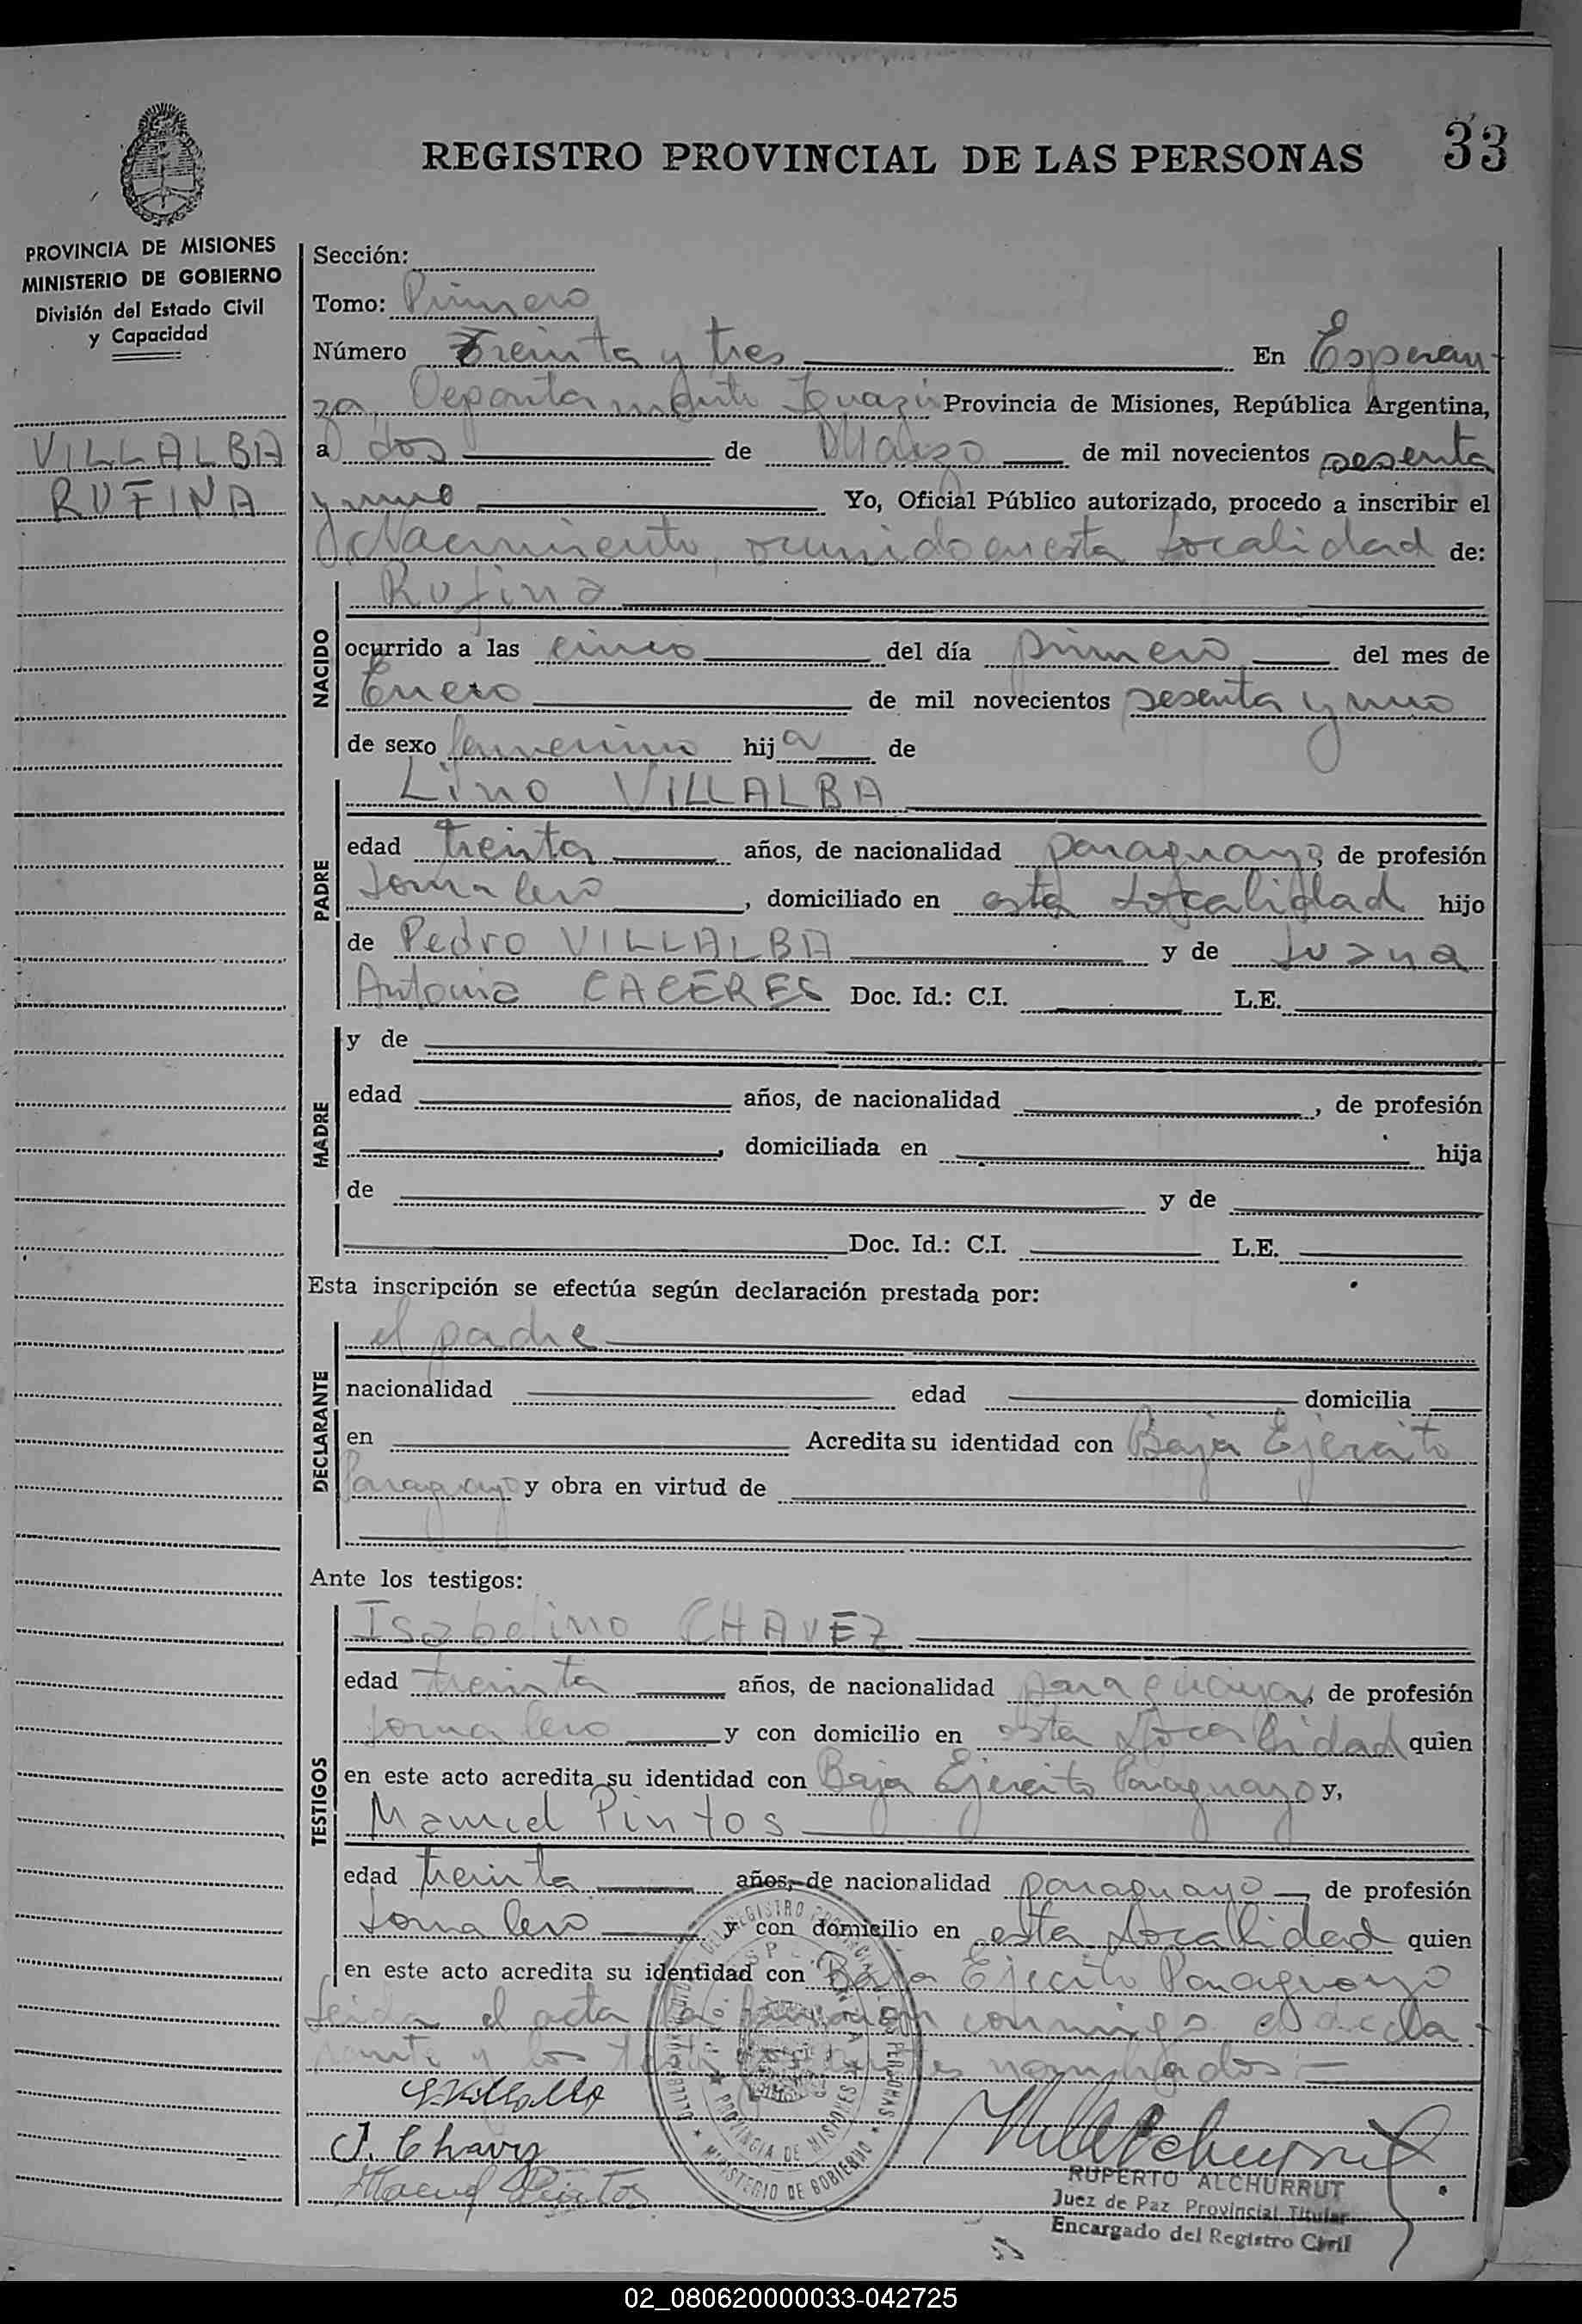 REGISTRO PROVINCIAL DE LAS PERSONAS 33
PROVINCIA DE MISIONES
MINISTERIO DE GOBIERNO
División del Estado Civil
y Capacidad
VILLALBA
RUFINA
Sección:
Tomo: Primero
Número Treinta y tres En Esperan-
za, Departamento Iguazú Provincia de Misiones, República Argentina,
a dos de Marzo de mil novecientos sesenta
y uno Yo, Oficial Público autorizado, procedo a inscribir el
Nacimiento, ocurrido en esta Localidad de:
NACIDO
Rufina
ocurrido a las cinco del día primero del mes de
Enero de mil novecientos sesenta y uno
de sexo femenino hija de
PADRE
Lino VILLALBA
edad treinta años, de nacionalidad paraguayo, de profesión
Jornalero, domiciliado en esta Localidad hijo
de Pedro VILLALBA y de Juana
Antonia CACERES Doc. Id.: C.I. L.E.
MADRE
y de
edad años, de nacionalidad , de profesión
, domiciliada en hija
de y de
Doc. Id.: C.I. L.E.
Esta inscripción se efectúa según declaración prestada por:
DECLARANTE
el padre
nacionalidad edad domicilia
en Acredita su identidad con Baja Ejercito
Paraguayo y obra en virtud de
Ante los testigos:
TESTIGOS
Isabelino CHAVEZ
edad treinta años, de nacionalidad paraguaya, de profesión
Jornalero y con domicilio en esta Localidad quien
en este acto acredita su identidad con Baja Ejercito Paraguayo y,
Manuel Pintos
edad treinta años, de nacionalidad paraguayo, de profesión
Jornalero y con domicilio en esta Localidad quien
en este acto acredita su identidad con Baja Ejecito Paraguayo
Leida el acta la firmaron conmigo el decla-
rante y los nombrados
L. Villalba
J. Chavez
Manuel Pintos
PROVINCIA DE MISIONES
MINISTERIO DE GOBIERNO
RUPERTO ALCHURRUT
Juez de Paz Provincial Titular
Encargado del Registro Civil
02_080620000033-042725